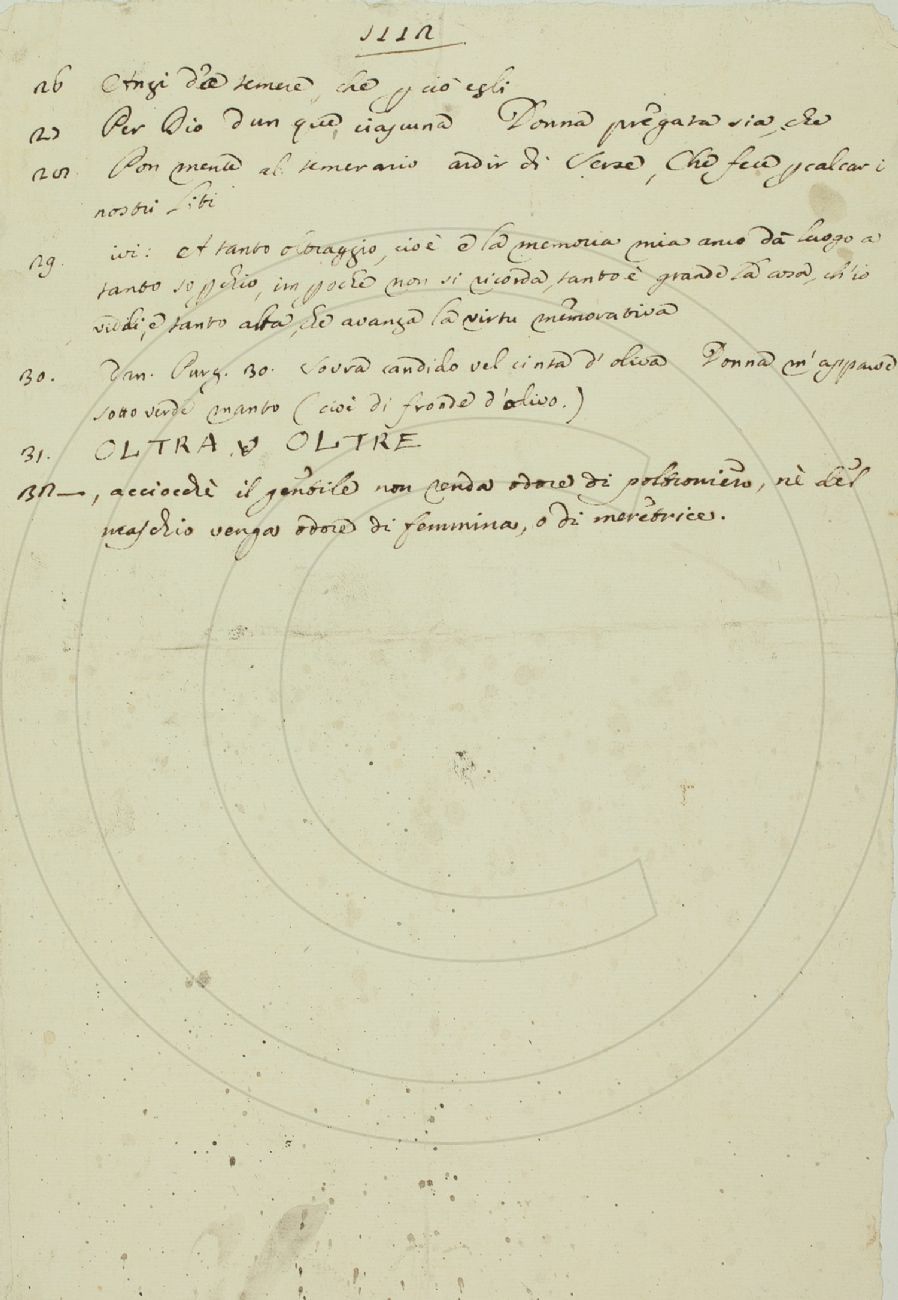 1112
26 Anzi dèe temere, che p ciò egli
27 Per Dio dunque ciascuna Donna pregata sia, che
28. Pon mente al temerario ardir di Serse, Che fece p calcar i
nostri liti
29. ivi: A tanto oltraggio, cioè e la memoria mia anco dà luogo a
tanto sopchio, impoche non si ricorda, tanto è grande la cosa, ch'io
viddi, e tanto alta, che avanza la virtù memorativa
30. Dan. Purg. 30. Sovra candido vel cinta d'oliva Donna m'apparve
sotto verde manto (cioè di fronde d'olivo.)
31. OLTRA, e OLTRE
32—, acciocchè il gentile non renda odore di poltroniero, nè del
maschio venga odore di femmina, o di meretrice.